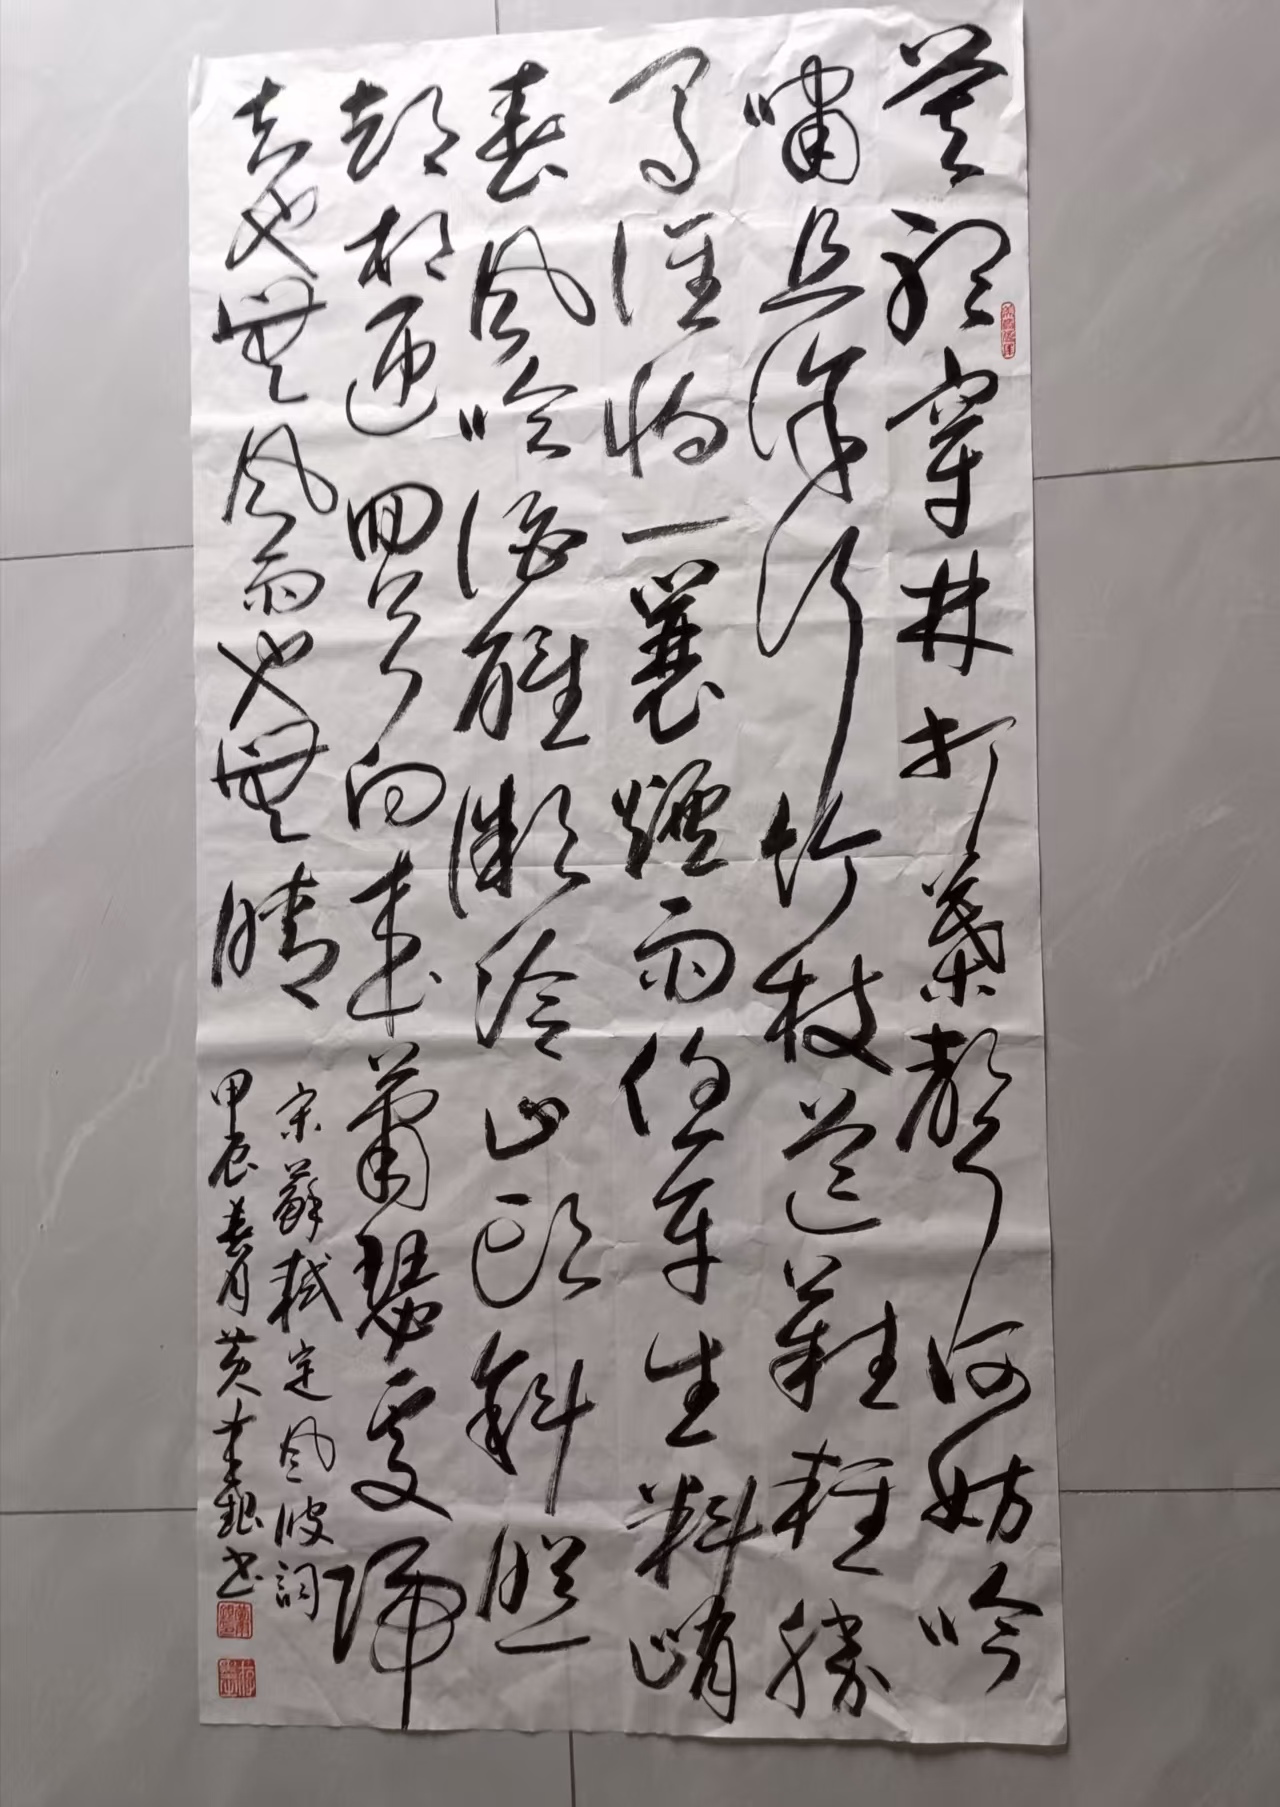 莫聽穿林打葉聲何妨吟
嘯且徐行竹杖芒鞋輕勝
馬誰怕一蓑煙雨任平生料峭
春風吹酒醒微冷山頭斜照
却相迎回首向來蕭瑟處歸
去也無風雨也無晴
宋蘇軾定風波詞
甲辰春月黄銀书